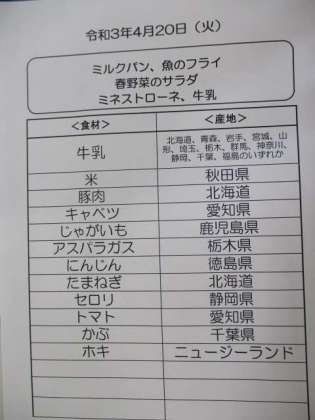 令和3年4月20日（火）
ミルクパン、魚のフライ
春野菜のサラダ
ミネストローネ、牛乳
＜食材＞ ＜産地＞
牛乳 北海道、青森、岩手、宮城、山
形、埼玉、栃木、群馬、神奈川、
静岡、千葉、福島のいずれか
米 秋田県
豚肉 北海道
キャベツ 愛知県
じゃがいも 鹿児島県
アスパラガス 栃木県
にんじん 徳島県
たまねぎ 北海道
セロリ 静岡県
トマト 愛知県
かぶ 千葉県
ホキ ニュージーランド